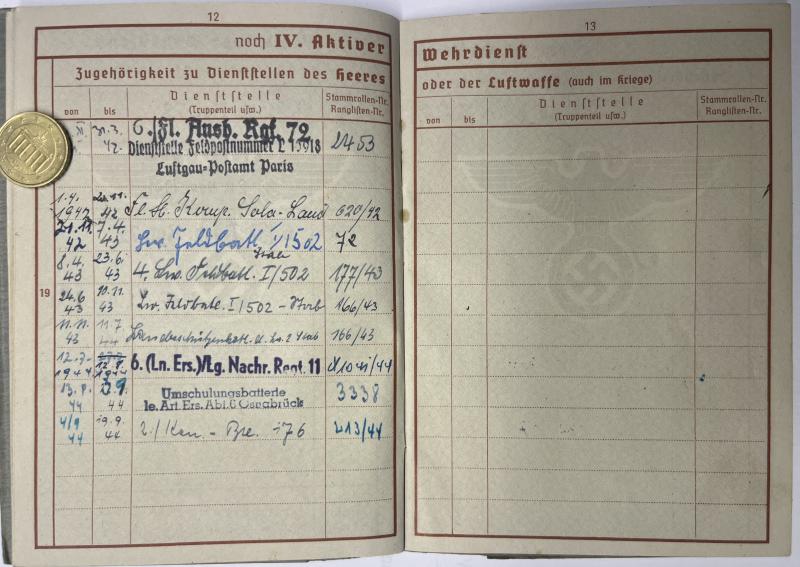 12
noch IV. Aktiver
Zugehörigkeit zu Dienststellen des Heeres
von
bis
Dienststelle
(Truppenteil usw.)
Stammrollen-Nr.
Ranglisten-Nr.
31.3.
42.
6./Fl. Ausb. Rgt. 72
Dienststelle Feldpostnummer L
Luftgau-Postamt Paris
2453
1.4.
1942
42
Fl. H. Komp. Sola-Land
620/42
42
7.4.
43
Lw. Feldbatl. I/502
72
8.4.
43
23.6.
43
4. Lw. Feldbatl. I/502
Stab
177/43
19
24.6
43
10.11.
43
Lw. Feldbatl. I/502 - Stab
166/43
11.11.
43
11.7
44
166/43
12.7.
1944
12.8.
1944
6. (Ln. Ers.)/Lg. Nachr. Regt. 11
13.8.
44
3.9.
44
Umschulungsbatterie
le. Art. Ers. Abt. 6 Osnabrück
3338
4/9
44
19.9.
44
2./
413/44
13
Wehrdienst
oder der Luftwaffe (auch im Kriege)
von
bis
Dienststelle
(Truppenteil usw.)
Stammrollen-Nr.
Ranglisten-Nr.